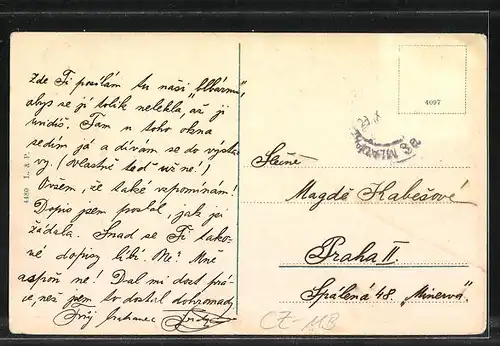 Zde Ti posílám tu naši „blbárnu",
abys se jí tolik nelekla, až ji
uvidíš. Tam u toho okna
sedím já a dívám se do výsta-
vy. (vlastně teď už ne!)
Ovšem, že také vzpomínám!
Dopis jsem poslal, jak jsi
žádala. Snad se Ti tako-
né dopisy líbí. Mě? Mně
aspoň ne! Dal mi dost prá-
ce, než jsem to dostal dohromady
Tvůj
4489 L. & P.
4097
Slečně
Magdě Habešové
Praha II.
Spálená 48. „Minerva"
CZ-MB